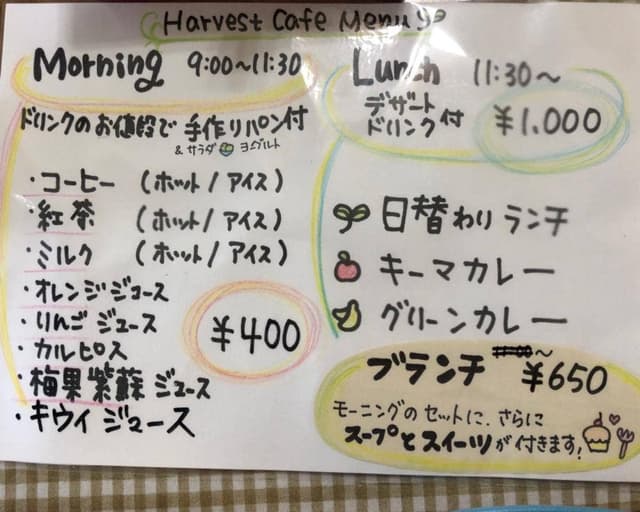 Harvest Cafe Menu
Morning 9:00~11:30
ドリンクのお値段で 手作りパン付
& サラダ ヨーグルト
・コーヒー (ホット/アイス)
・紅茶 (ホット/アイス)
・ミルク (ホット/アイス)
・オレンジジュース
・りんごジュース
・カルピス
・梅果紫蘇ジュース
・キウイジュース
¥400
Lunch 11:30~
デザート
ドリンク付 ¥1.000
日替わりランチ
キーマカレー
グリーンカレー
ブランチ ~
¥650
モーニングのセットに、さらに
スープとスイーツが付きます!